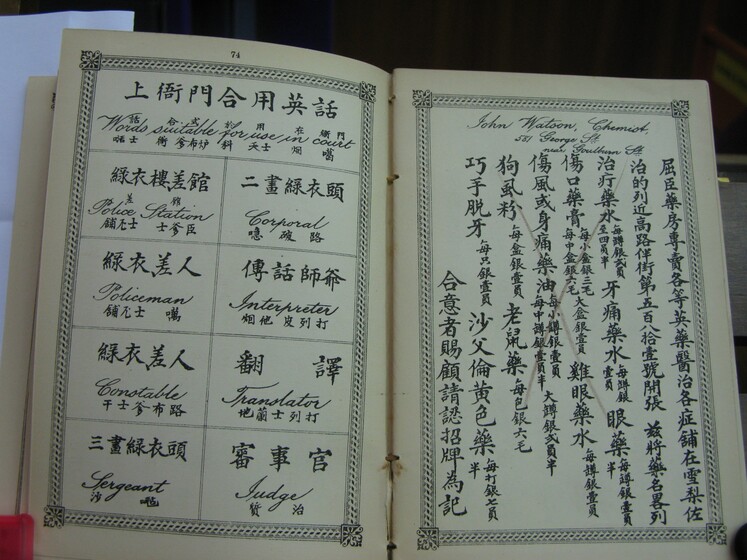 74
上衙門合用英話
話 合式 於 用 在 衙門
Words suitable for use in court
綠衣樓差館
差 館
Police Station
二畫綠衣頭
Corporal
綠衣差人
Policeman
傳話師爺
Interpreter
烟他皮列打
綠衣差人
Constable
干士爹布路
翻譯
Translator
地蘭士列打
三畫綠衣頭
Sergeant
審事官
Judge
John Watson, Chemist,
581 George St.
near Goulburn St
屈臣藥房專賣各等英藥醫治各症鋪在雪梨佐
治的列近高路伴街第五百八拾壹號開張 茲將藥名畧列
治疔藥水每罇銀弍員至四員半 牙痛藥水每罇銀壹員 眼藥每罇銀壹員半
傷口藥膏每小盒銀三毛每中盒銀六毛大盒銀壹員 雞眼藥水每罇銀壹員
傷風或身痛藥油每小罇銀壹員每中罇銀壹員半大罇銀弍員半
狗風粉每盒銀壹員 老鼠藥每包銀六毛
巧手脫牙每只銀壹員 沙父倫黃色藥每打銀七員半
合意者賜顧請認招牌為記